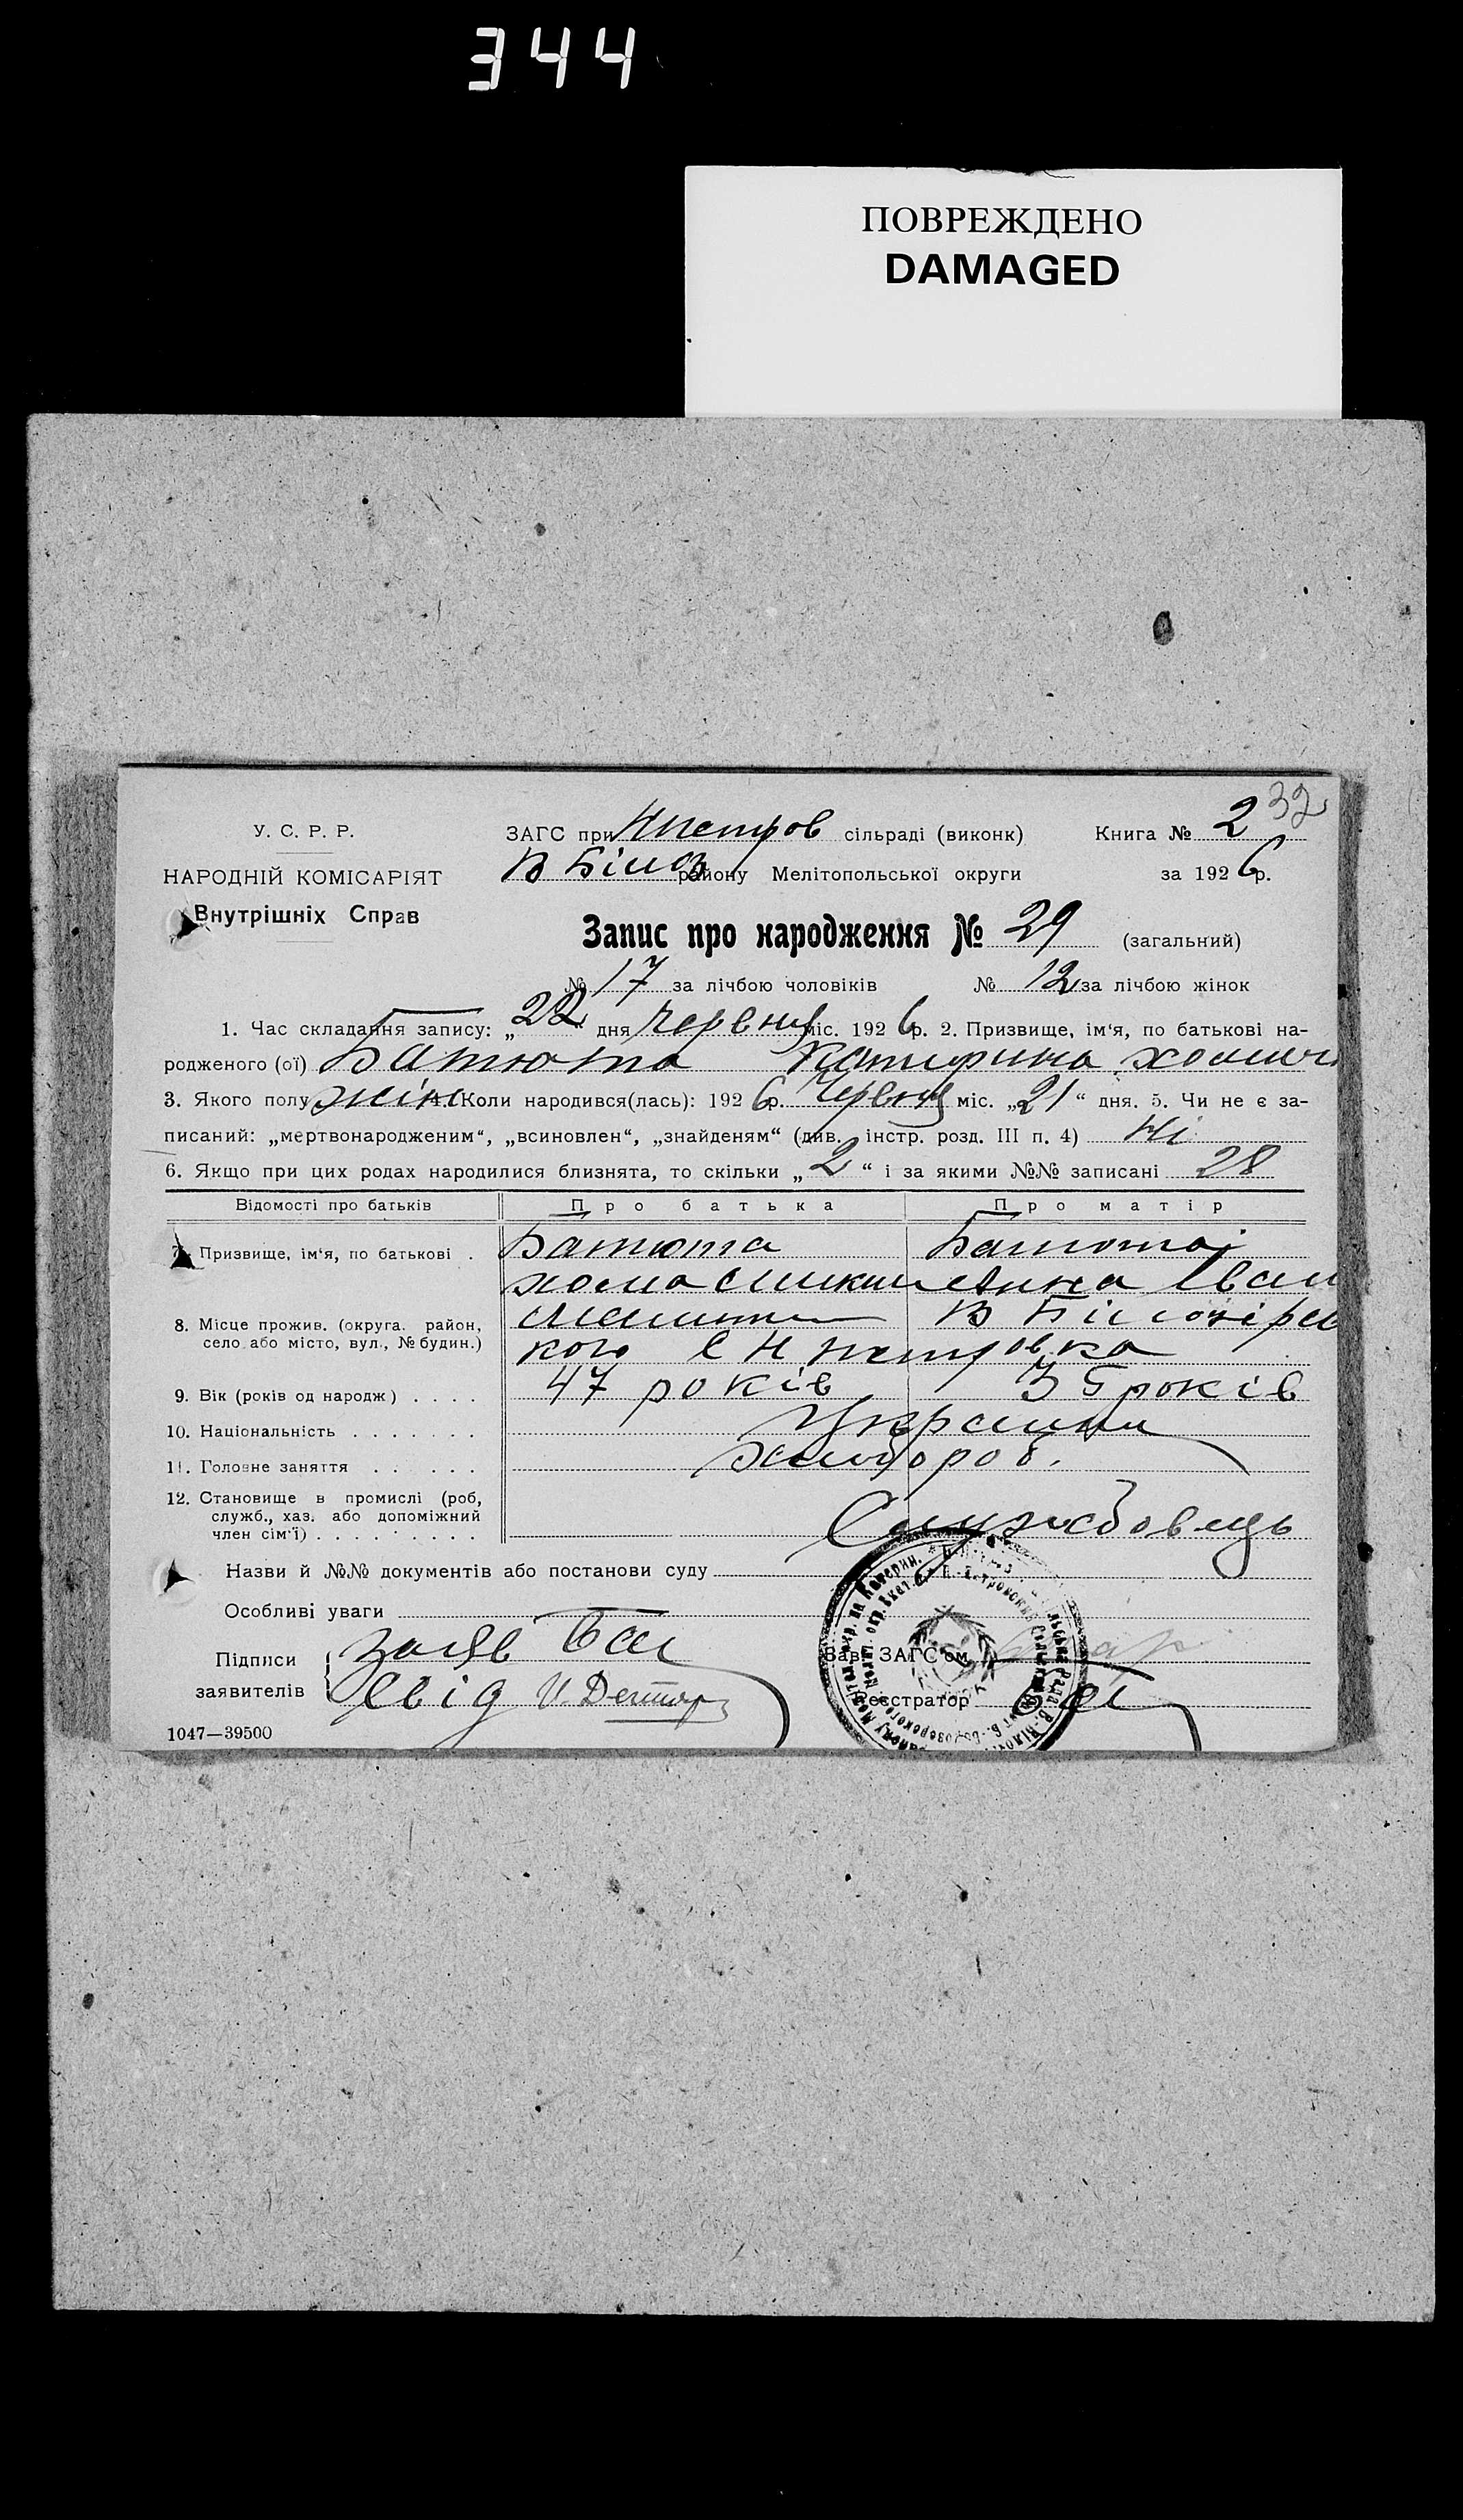 344
ПОВРЕЖДЕНО
DAMAGED
32
У. С. Р. Р.
НАРОДНІЙ КОМІСАРІЯТ
Внутрішніх Справ
ЗАГС при Нпетров сільраді (виконк) Книга № 2
В Білоз району Мелітопольської округи за 1926 р.
Запис про народження № 29 (загальний)
№ 17 за лічбою чоловіків № 12 за лічбою жінок
1. Час складання запису: „22“ дня червня міс. 1926 р. 2. Призвище, ім‘я, по батькові на-
родженого (ої) Батюта Катирина хомич
3. Якого полу жіно 4. Коли народився(лась): 1926 р. Червня міс. „21“ дня. 5. Чи не є за-
писаний: „мертвонародженим“, „всиновлен“, „знайденям“ (див. інстр. розд. III п. 4) Ні
6. Якщо при цих родах народилися близнята, то скільки „2“ і за якими №№ записані 28
Відомості про батьків Про батька Про матір
7. Призвище, ім‘я, по батькові . Батюта Батюта
хома Анна Іван
8. Місце прожив. (округа. район,
село або місто, вул., № будин.)
В Білозірсь
кого с Н петровка
9. Вік (років од народж) . . . . 47 років 35 років
10. Національність . . . . . . . Украини
11. Головне заняття . . . . . . хлібороб.
12. Становище в промислі (роб,
служб., хаз. або допоміжний
член сім‘ї) . . . . . . . . . Службовець
Назви й №№ документів або постанови суду
Особливі уваги
Підписи
заявителів
заяв Бат
Свід И. Дегтяр
Зав. ЗАГС‘ом
Реєстратор
1047—39500